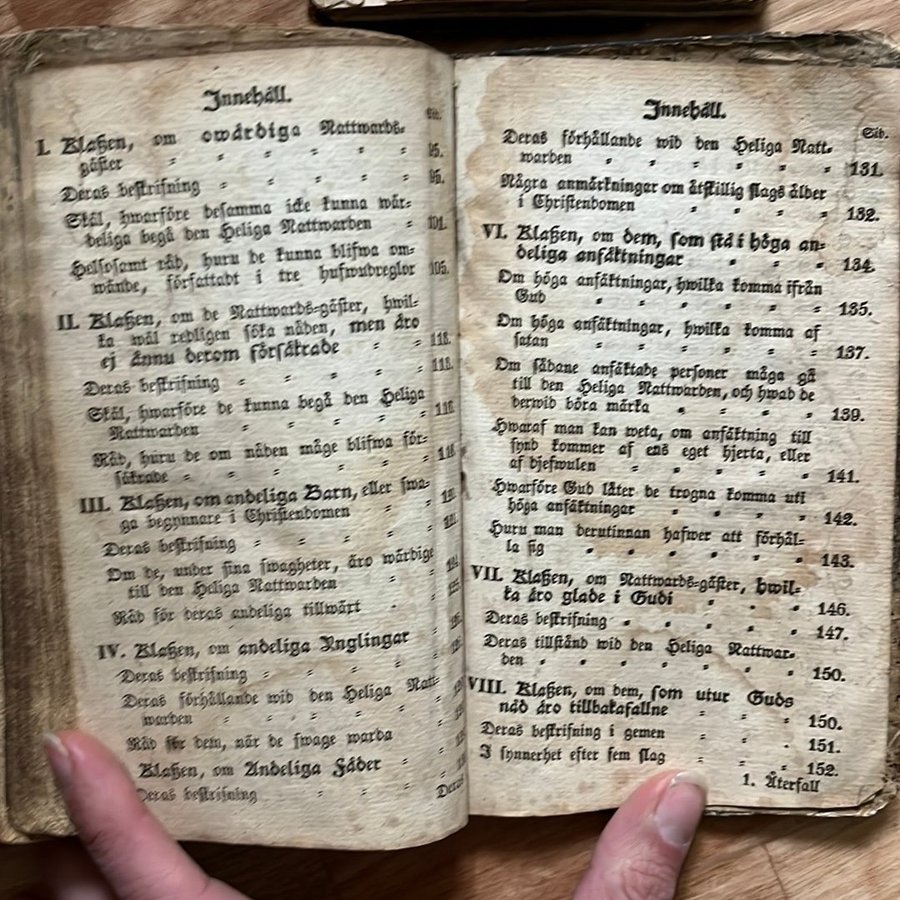 Innehåll.
Sid.
I. Klaßen, om owärdiga Nattwards-
gäster - - - - - 95.
Deras beskrifning - - - - - 95.
Skäl, hwarföre desamma icke kunna wär-
deliga begå den Heliga Nattwarden - 101.
Helsosamt råd, huru de kunna blifwa om-
wände, författadt i tre hufwudreglor 105.
II. Klaßen, om de Nattwards-gäster, hwil-
ka wäl redligen söka nåden, men äro
ej ännu derom försäkrade - - - 118.
Deras beskrifning - - - - 118.
Skäl, hwarföre de kunna begå den Heliga
Nattwarden - - - - -
Råd, huru de om nåden måge blifwa för-
säkrade - - - - - -
III. Klaßen, om andeliga Barn, eller swa-
ga begynnare i Christendomen - -
Deras beskrifning - - - - -
Om de, under sina swagheter, äro wärdige
till den Heliga Nattwarden - -
Råd för deras andeliga tillwäxt - -
IV. Klaßen, om andeliga Ynglingar
Deras beskrifning - - - -
Deras förhållande wid den Heliga Natt-
warden - - - - -
Råd för dem, när de swage warda
Klaßen, om Andeliga Fäder -
Deras beskrifning - - - -
Deras
Innehåll.
Sid.
Deras förhållande wid den Heliga Natt-
warden - - - - - 131.
Några anmärkningar om åtskillig slags ålder
i Christendomen - - - - 132.
VI. Klaßen, om dem, som stå i höga an-
deliga anfäktningar - - - 134.
Om höga anfäktningar, hwilka komma ifrån
Gud - - - - - - 135.
Om höga anfäktningar, hwilka komma af
satan - - - - - - 137.
Om sådane anfäktade personer måga gå
till den Heliga Nattwarden, och hwad de
derwid böra märka - - - - 139.
Hwaraf man kan weta, om anfäktning till
synd kommer af ens eget hjerta, eller
af djefwulen - - - - - 141.
Hwarföre Gud låter de trogna komma uti
höga anfäktningar - - - - 142.
Huru man derutinnan hafwer att förhål-
la sig - - - - - - 143.
VII. Klaßen, om Nattwards-gäster, hwil-
ka äro glade i Gudi - - - 146.
Deras beskrifning - - - - - 147.
Deras tillstånd wid den Heliga Nattwar-
den - - - - - - - 150.
VIII. Klaßen, om dem, som utur Guds
nåd äro tillbakafallne - - - 150.
Deras beskrifning i gemen - - - 151.
I synnerhet efter sem slag - - - 152.
1. Återfall